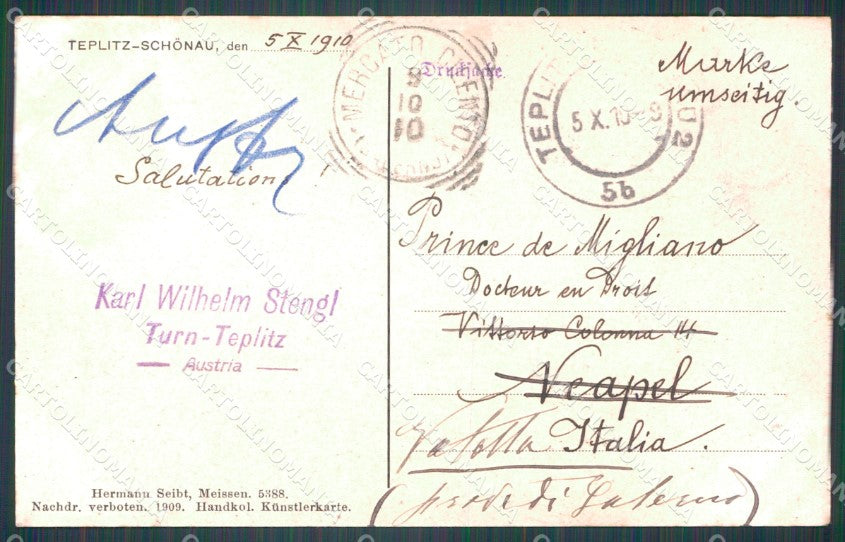 TEPLITZ-SCHÖNAU, den 5 X 1910
Salutations
Karl Wilhelm Stengl
Turn-Teplitz
— Austria —
Hermann Seibt, Meissen. 5388.
Nachdr. verboten. 1909. Handkol. Künstlerkarte.
MERCATO CILENTO
10
10
Drucksache.
TEPLITZ
5 X. 10
5b
Marke
umseitig.
Prince de Migliano
Docteur en Droit
Vittorio Colonna 14
Neapel
Italia.
(prov. di Salerno)
CARTOLINOMANIA